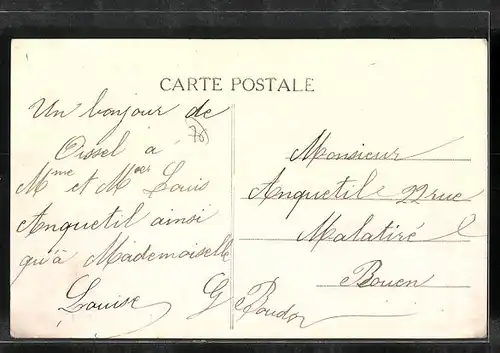 CARTE POSTALE
Un bonjour de
Oissel à
76
Mme et Mr Louis
Anquetil ainsi
qu'à Mademoiselle
Louise G Boudor
Monsieur
Anquetil 22 rue
Malatiré
Rouen